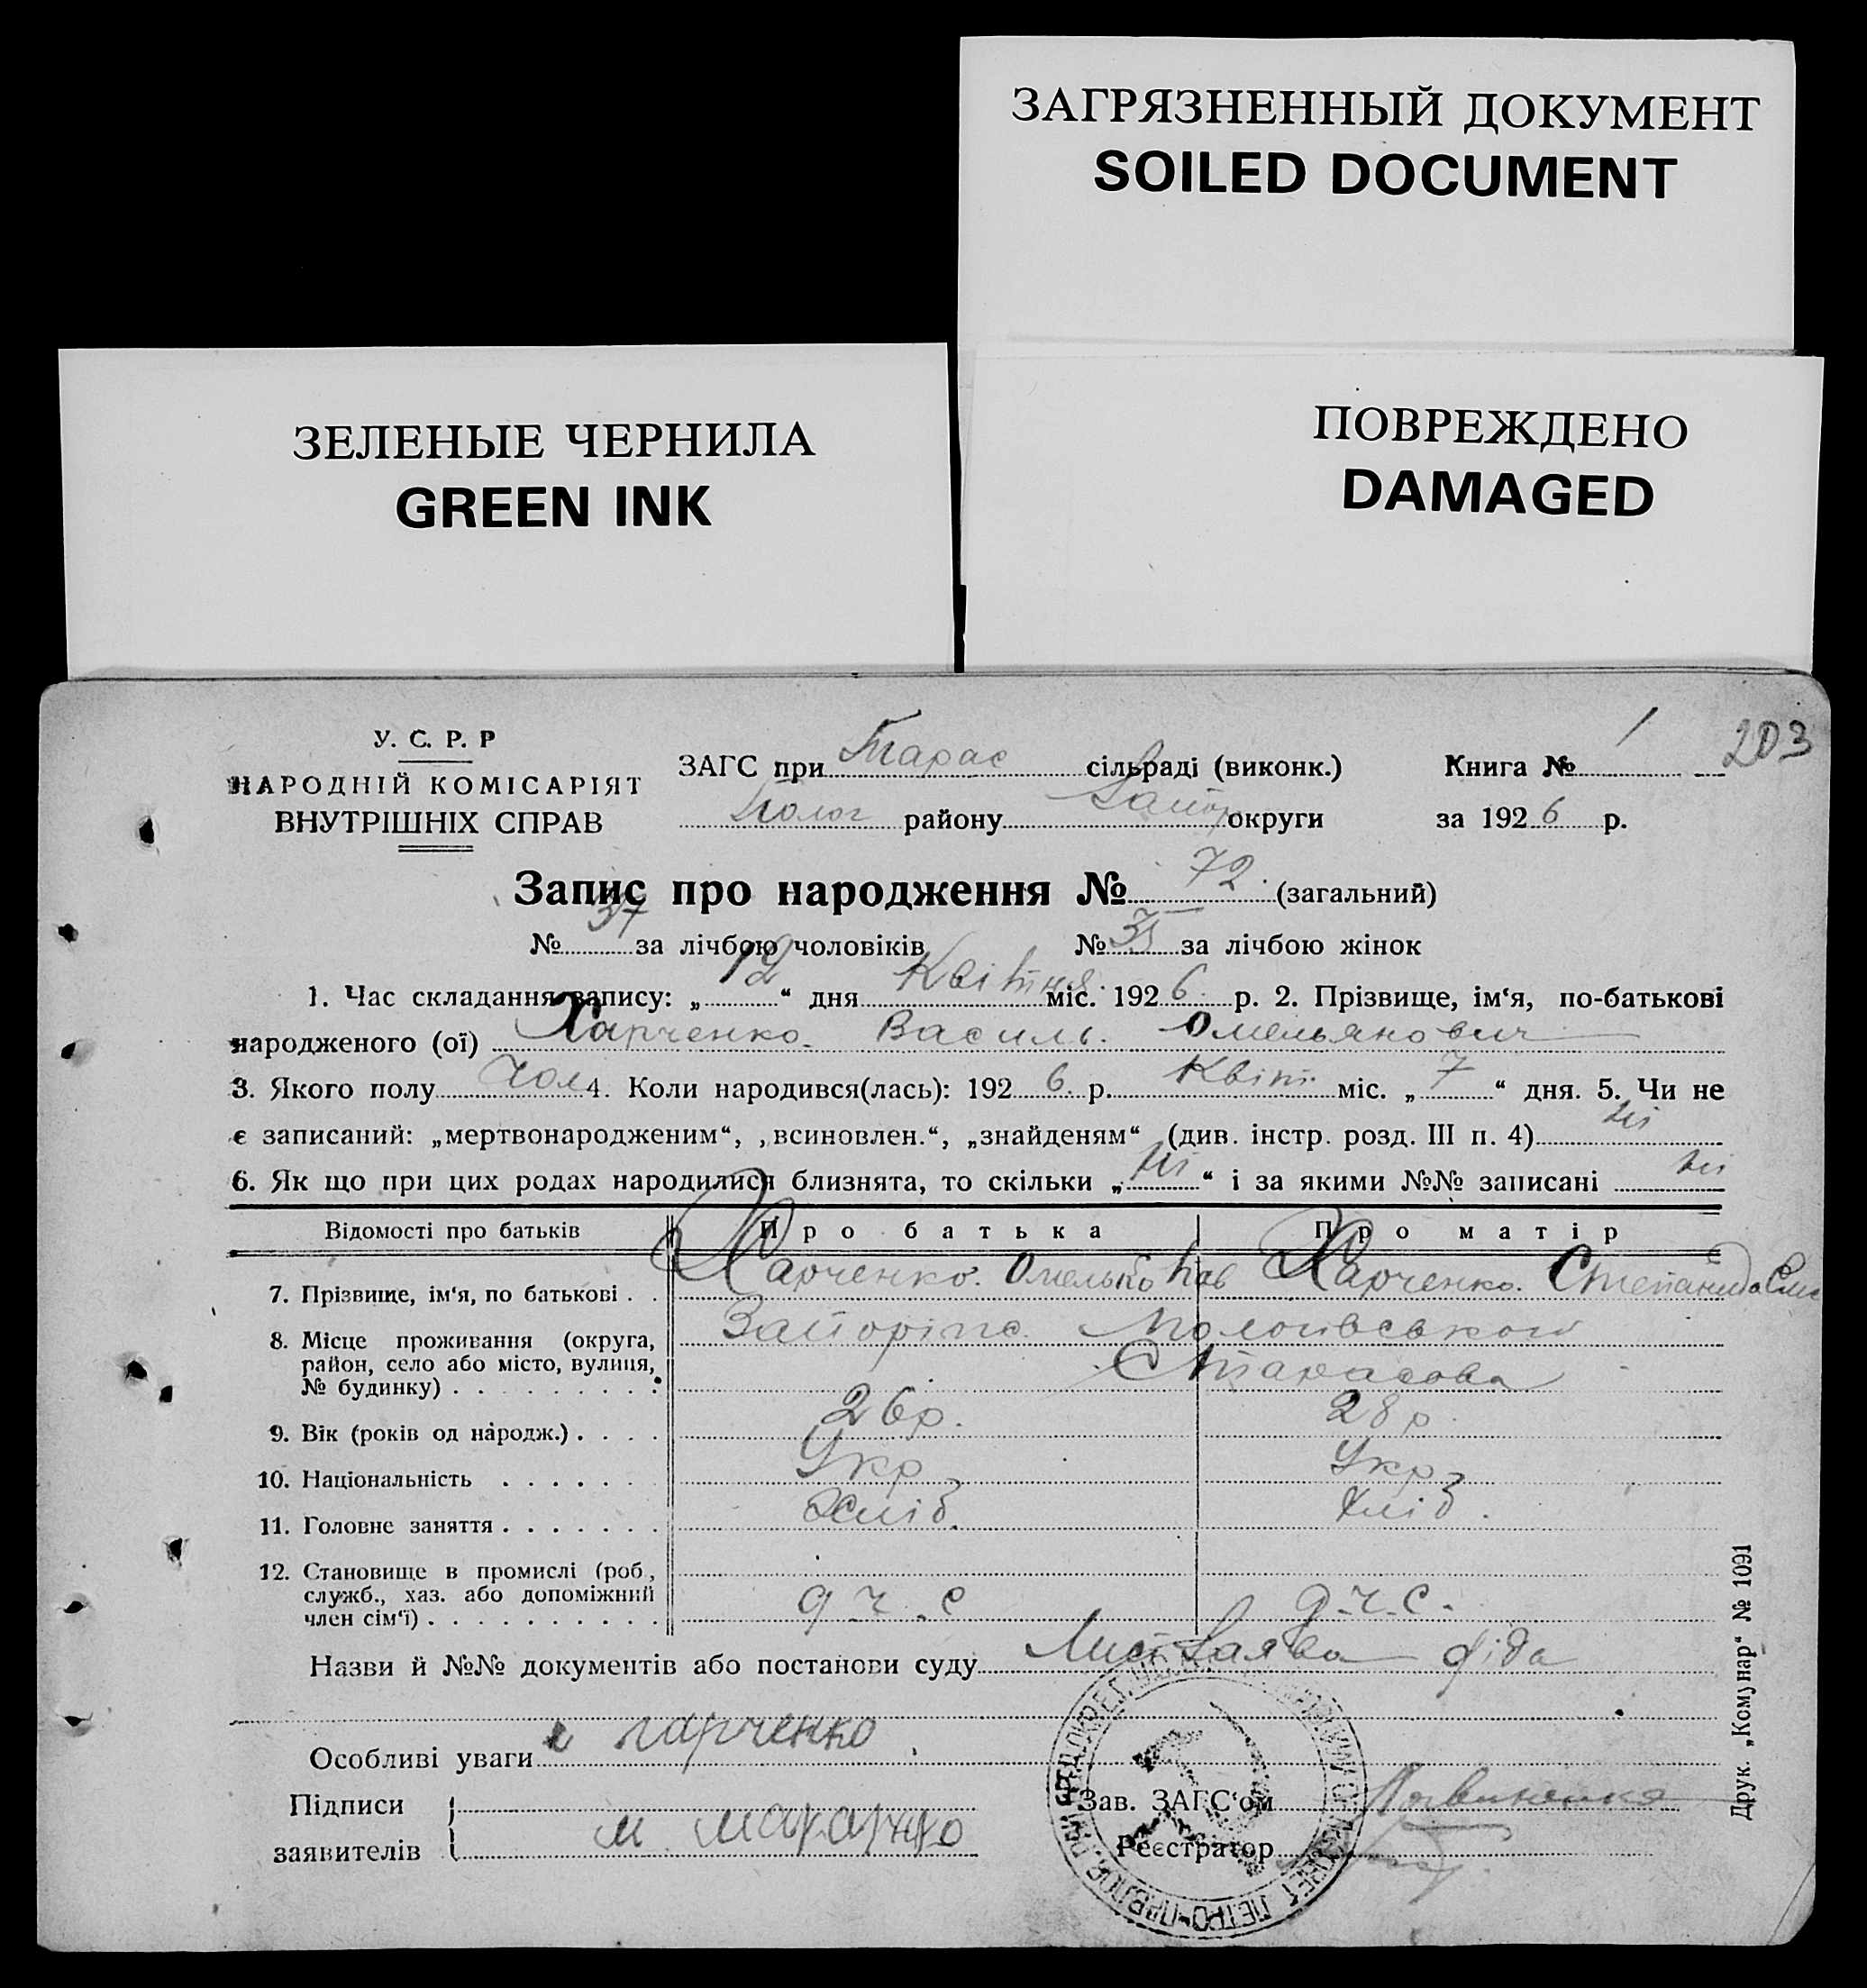 ЗАГРЯЗНЕННЫЙ ДОКУМЕНТ
SOILED DOCUMENT
ЗЕЛЕНЫЕ ЧЕРНИЛА
GREEN INK
ПОВРЕЖДЕНО
DAMAGED
203
У. С. Р. Р
НАРОДНІЙ КОМІСАРІЯТ
ВНУТРІШНІХ СПРАВ
ЗАГС при Тарас сільраді (виконк.) Книга № 1
Полог району Запор округи за 1926 р.
Запис про народження № 72. (загальний)
№ 37 за лічбою чоловіків № 35 за лічбою жінок
1. Час складання запису: „12“ дня Квітня міс. 1926 р. 2. Прізвище, ім‘я, по-батькові
народженого (ої) Харченко Василь Омельянович
3. Якого полу Чол 4. Коли народився(лась): 1926. р. Квіт. міс. „7“ дня. 5. Чи не
є записаний: „мертвонародженим“, „всиновлен.“, „знайденям“ (див. інстр. розд. III п. 4) ні
6. Як що при цих родах народилися близнята, то скільки „ні“ і за якими №№ записані ні
Відомості про батьків Про батька Про матір
7. Прізвище, ім‘я, по батькові . . Харченко. Омелько Пав Харченко. Степанида
8. Місце проживання (округа, район, село або місто, вулиця, № будинку) . . . . . . . . . Запоріпс. Пологівського
С Тарасова
9. Вік (років од народж.) . . . . 26 р. 28 р.
10. Національність . . . . . . Укр Укр
11. Головне заняття . . . . . . . Хліб. Хліб.
12. Становище в промислі (роб., служб., хаз. або допоміжний член сім‘ї) . . . . . . . . . . д. ч. с д. ч. с.
Назви й №№ документів або постанови суду Заява діда
Особливі уваги Харченко
Підписи
заявителів м макаренко
Зав. ЗАГС‘ом
Реєстратор
Друк. „Комунар“ № 1091